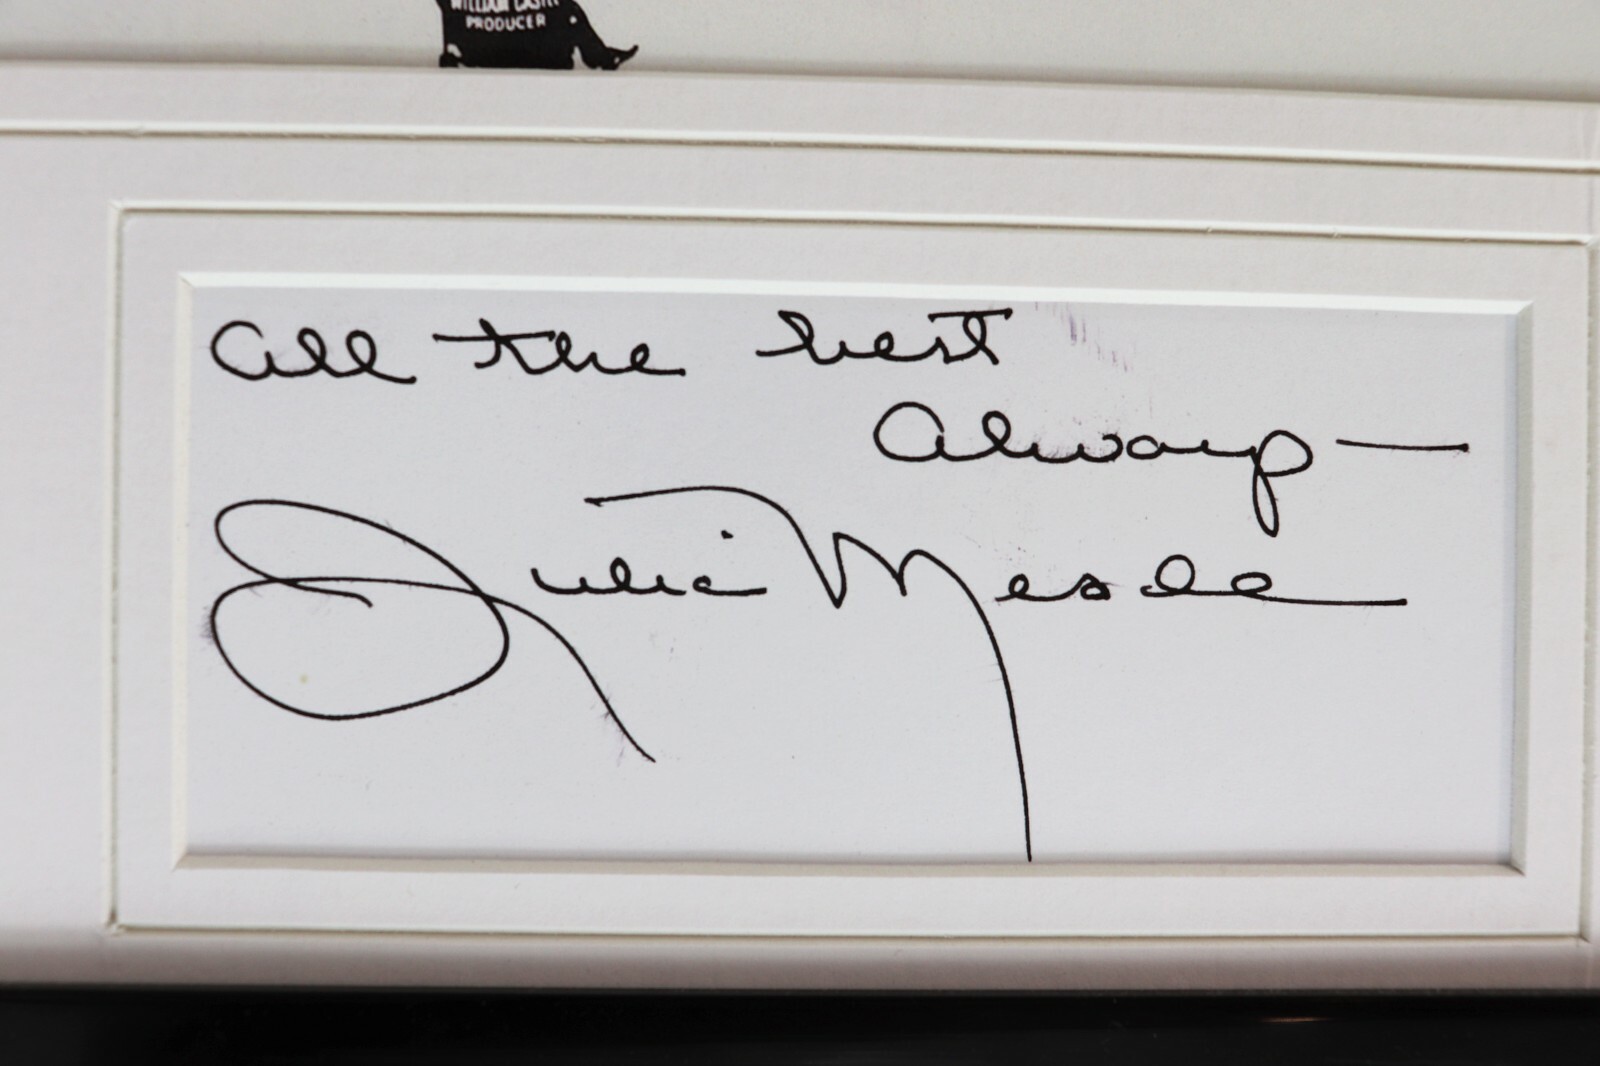 WILLIAM CASTLE
PRODUCER
All the best
Always —
Julia Meade